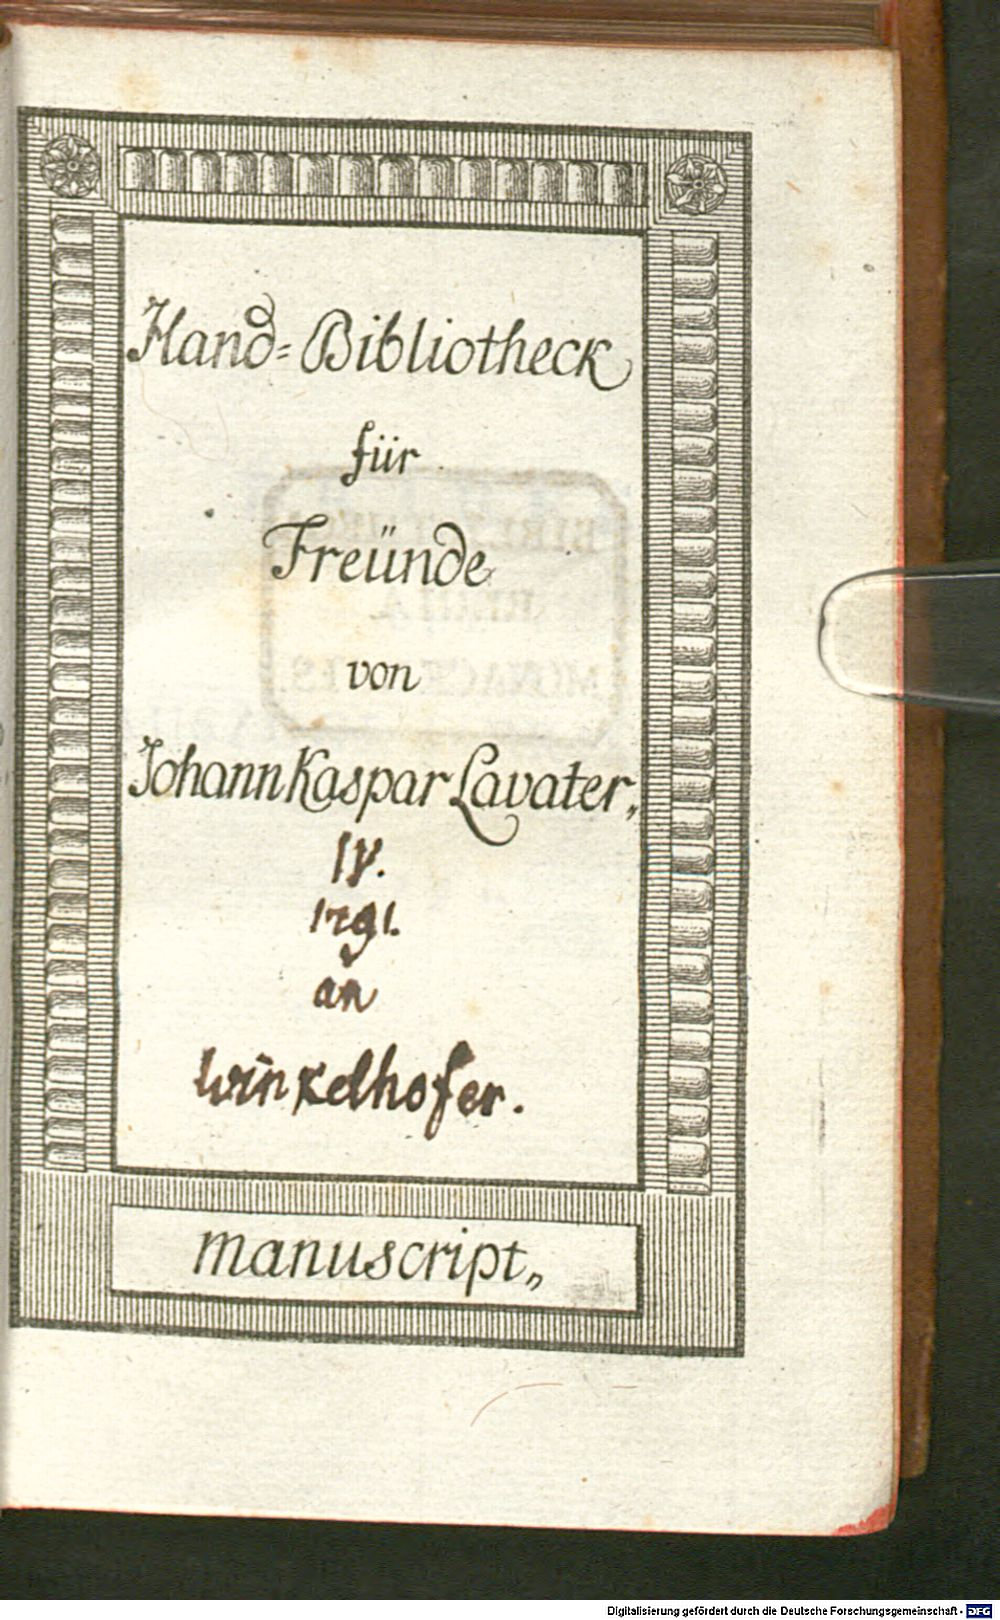 Hand=Bibliotheck
für
Freünde
von
Johann Kaspar Lavater,
IV.
1791.
an
Winkelhofer.
manuscript,,
Digitalisierung gefördert durch die Deutsche Forschungsgemeinschaft - DFG